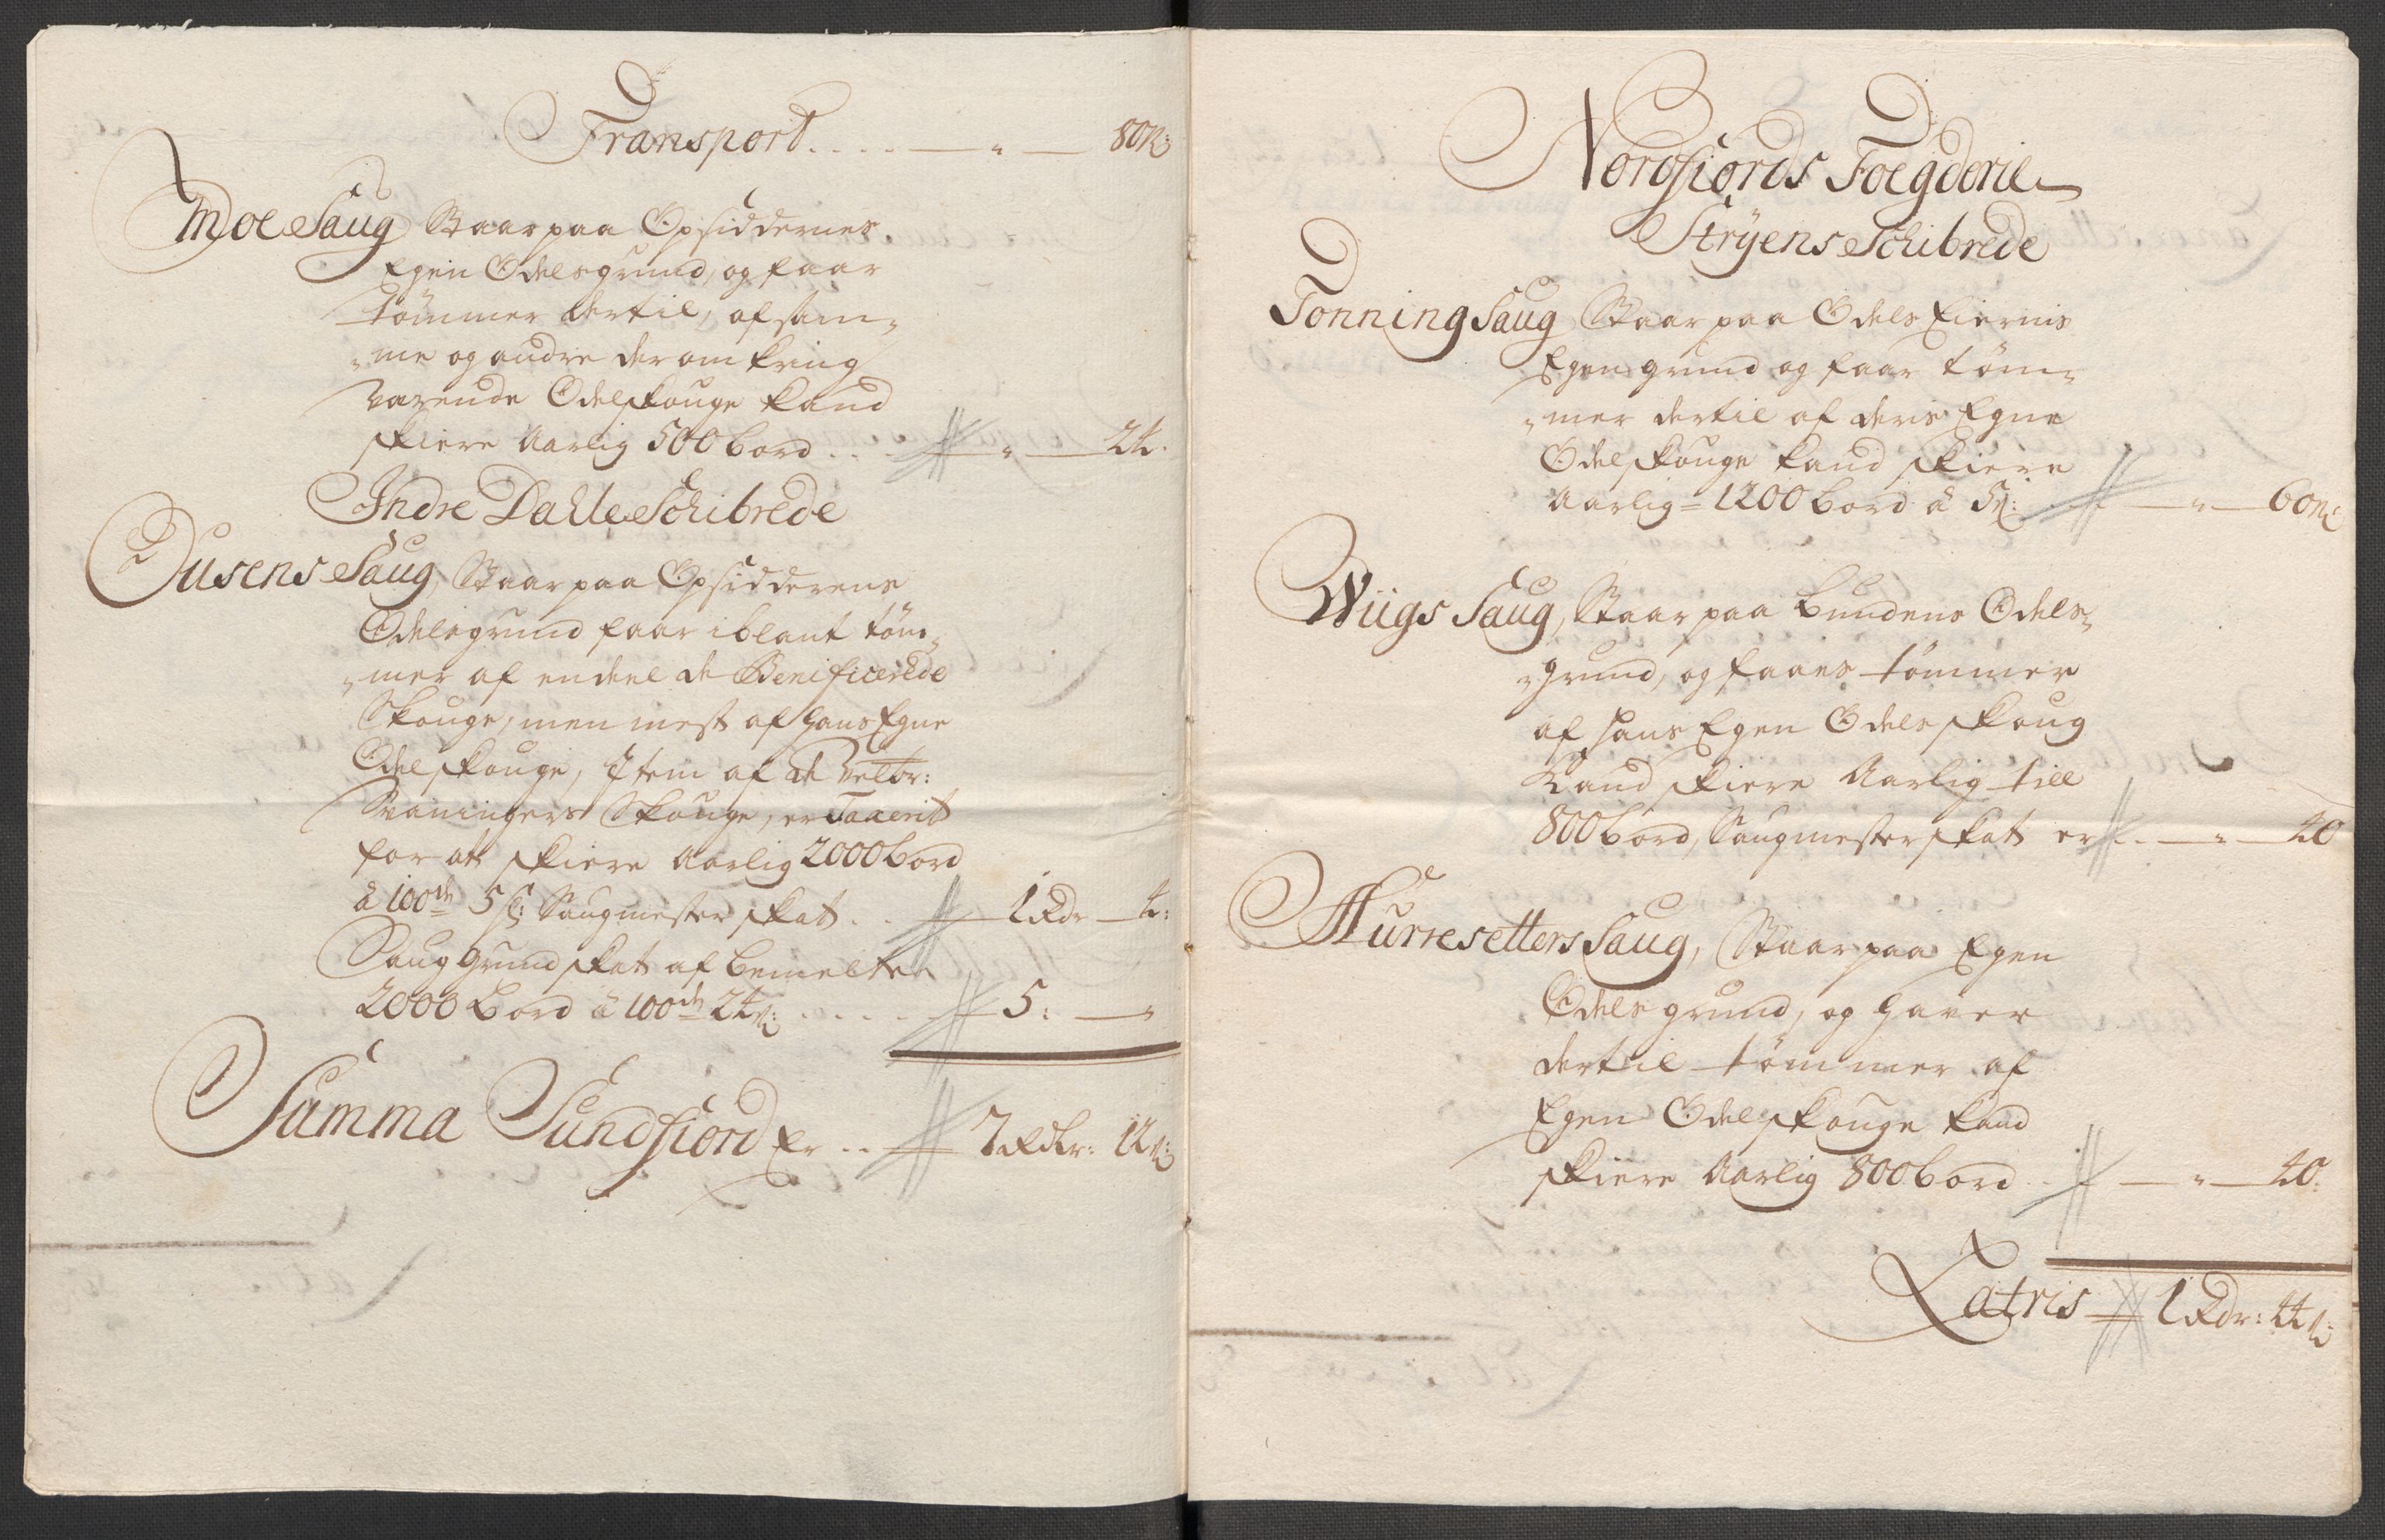 Transport . . . . — „ — 80 ß:
Moe Saug Staar paa Opsiddernes
Egen Odelsgrund, og faar
tömmer dertil, af sam„
„me og andre der omkring
værende Odelskouge kand
skiere Aarlig 500 bord . . . — „ — 24.
Indre Dahle Schibrede
Dusens Saug, Staar paa Opsidderens
Odelsgrund faar iblant töm„
„mer af en deel de Benificerede
Skouge, men mest af hans Egne
Odelskouge, Item af de
Svaningers Skouge, er Taxerit
for at skiere Aarlig 2000 bord
â 100de 5 ß: Saugmester skat . . — 1 Rdr — 4:
Saug Grund skat af bemelte
2000 bord â 100de 24 ß: . . . . . 5: — „
Summa Sundfiord Er . . — 7 Rdlr: 12 ß:
Nordfiords Foegderie
Stryens Schibrede
Tonning Saug Staar paa Odels Eiernis
Egen grund og faar töm„
„mer dertil af deris Egne
Odelskouge kand skiere
Aarlig = 1200 bord â 5 ß: — „ — 60 ß:
Wiigs Saug, Staar paa bundens Odels„
„grund, og faaes tömmer
af hans Egen Odels skoug
Kand skiere Aarlig till
800 bord, Saugmester skat er . . — „ — 40
Hurresetters Saug, Staar paa Egen
Odels grund, og haver
dertil tömmer af
Egen Odelskouge kand
skiere Aarlig 800 bord . . — „ — 40:
Latris — 1 Rdr: 44 ß: